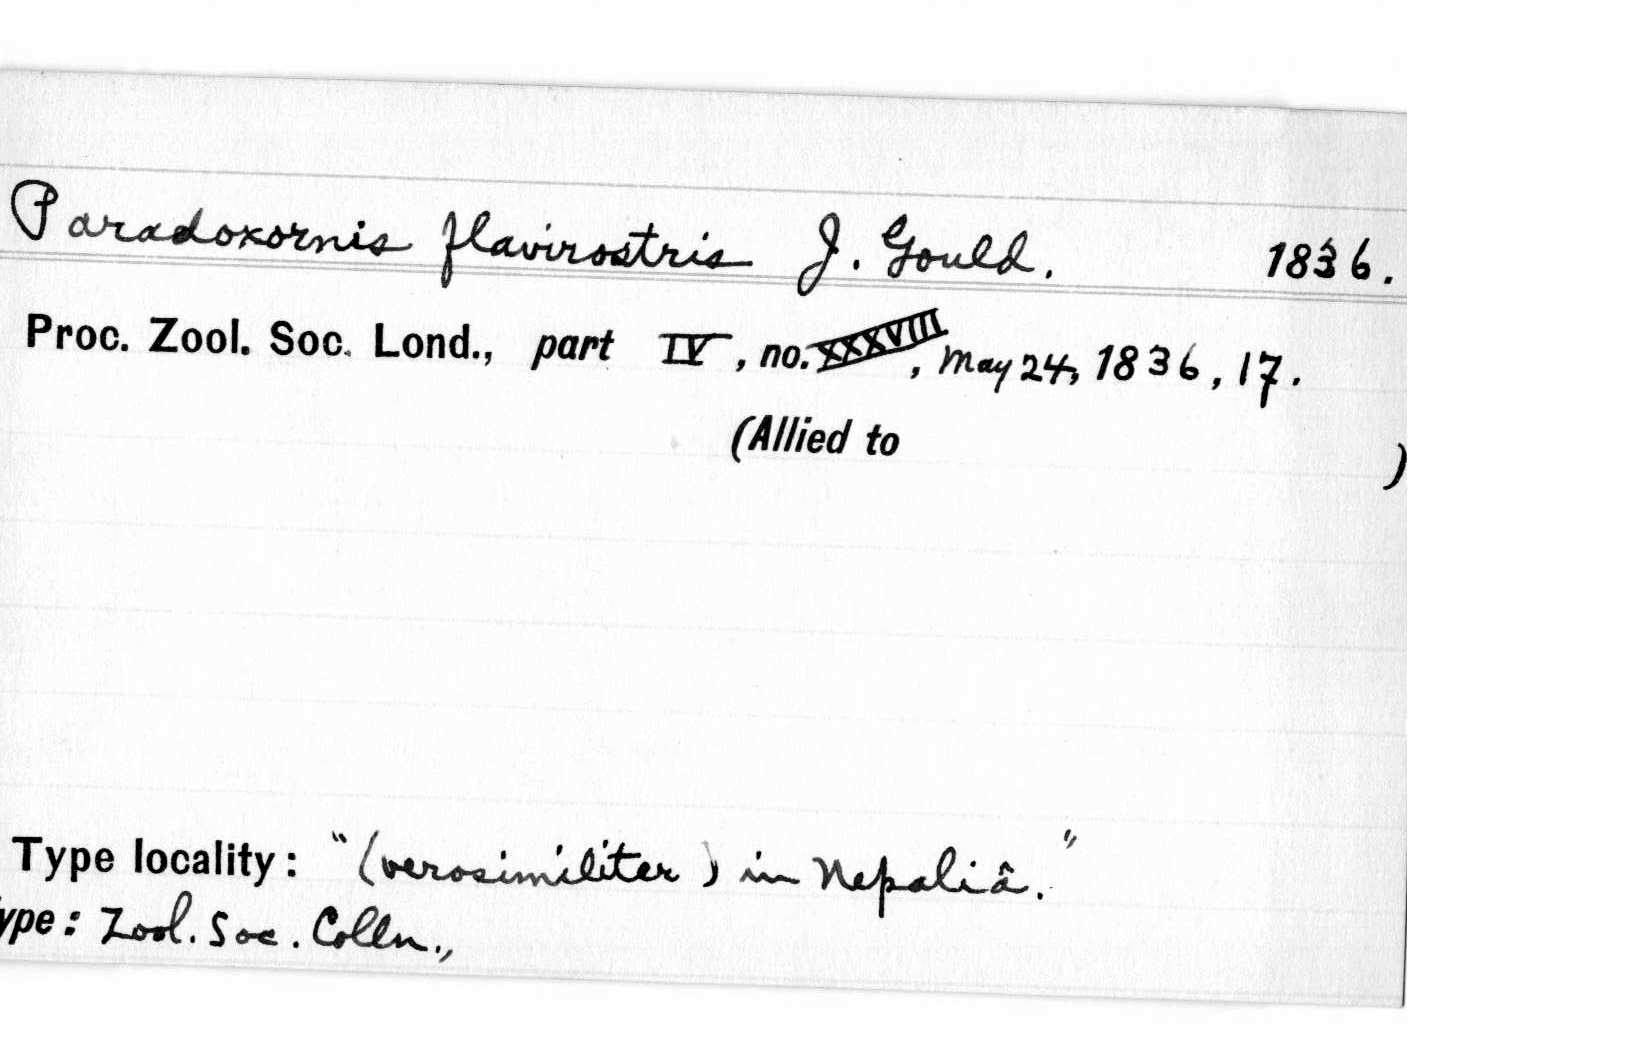 Paradoxornis flavirostris J. Gould. 1836.
Proc. Zool. Soc. Lond., part IV, no. XXXVIII, May 24, 1836, 17.
(Allied to )
Type locality: "(verosimiliter) in Nepaliâ."
ype: Zool. Soc. Colln.,